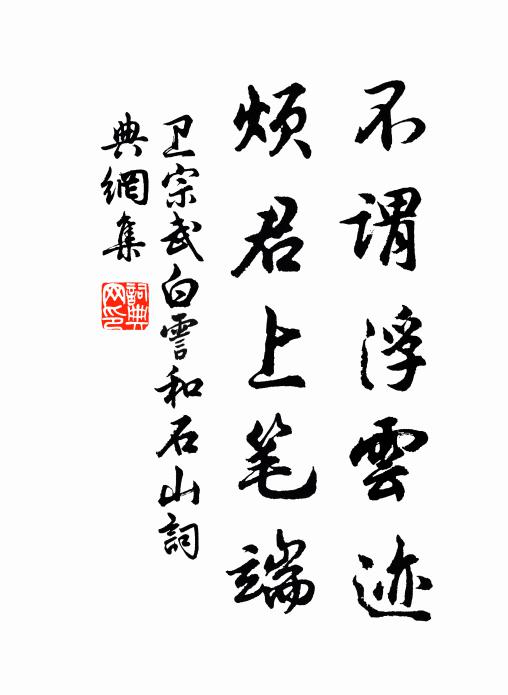 不谓浮雲迹
烦君上笔端
卫宗武白雲和石山詞
典網集
詞典
网印